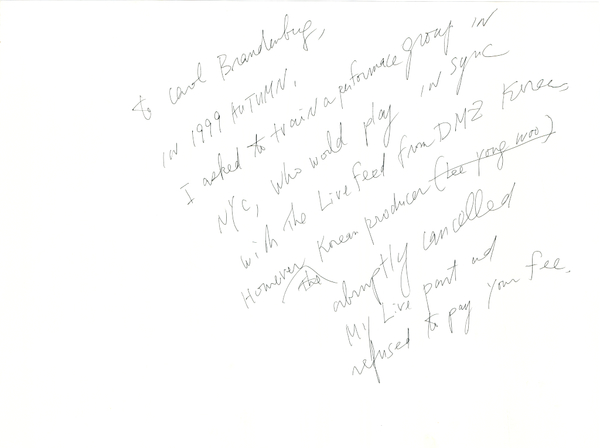 to Carol Brandenburg,
IN 1999 AUTUMN,
I asked to train a performace group IN
NYC, who would play IN sync
with the Live Feed from DMZ Korea,
However the Korean producer (Lee yong woo)
abruptly cancelled
My Live part and
refused to pay your fee.